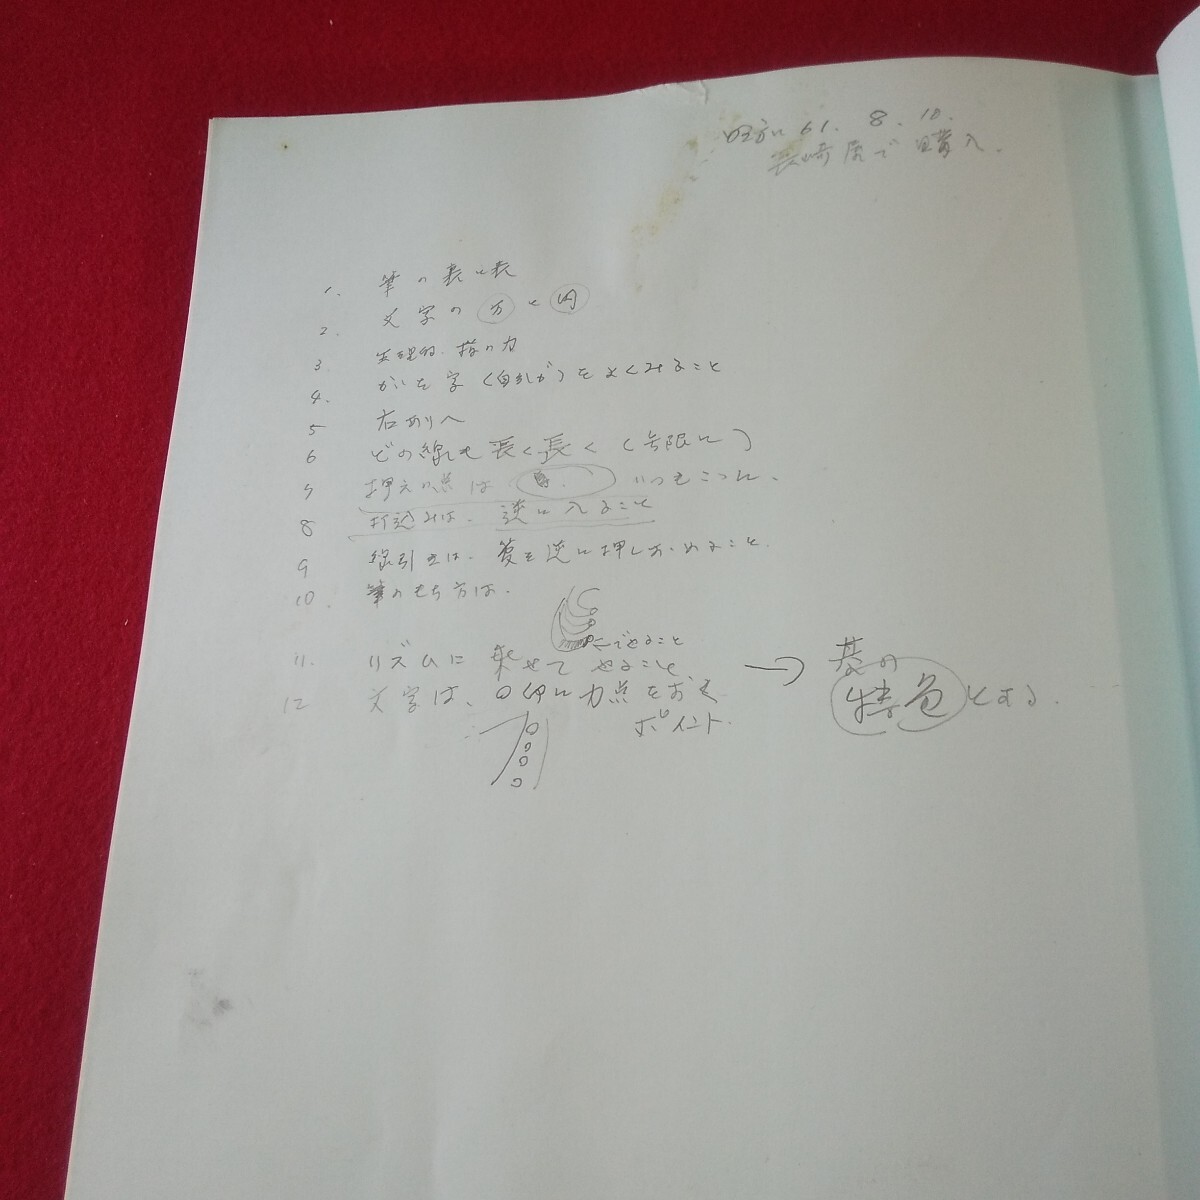 昭和61.8.10.
長崎屋で購入.
1. 筆の表と表
2. 文字の方と円
3. 指の力
4. 字(自分が)をよくみること
5 右あがりへ
6 どの線も長く長く(無限に)
7 押えの点は いつも
8 打込みは、逆に入ること
9 線引きは、筆を逆に押し こと.
10. 筆のもち方は.
←でやること
11. リズムに乗せてやること → 基の
特色とする.
12 文字は、 に力点をおく
ポイント.